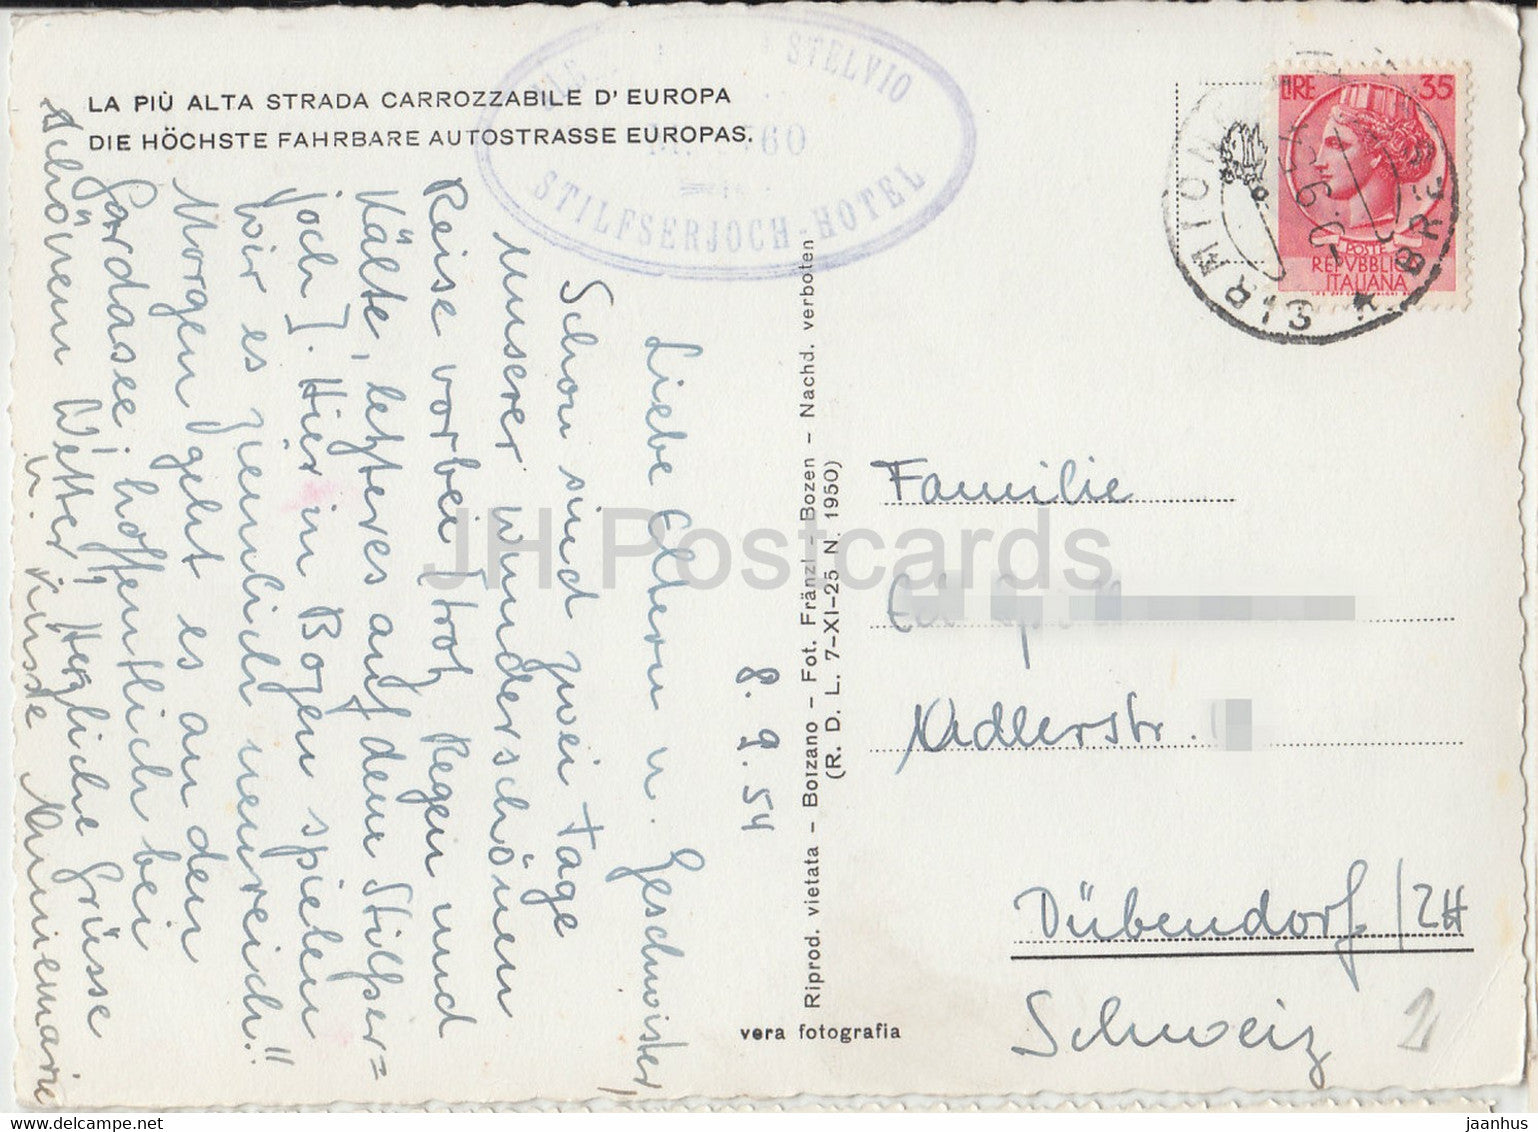 LA PIÙ ALTA STRADA CARROZZABILE D' EUROPA
DIE HÖCHSTE FAHRBARE AUTOSTRASSE EUROPAS.
STELVIO
60
STILFSERJOCH-HOTEL
LIRE 35
POSTE
REPVBBLICA
ITALIANA
SIRMIONE
BRES
8. 9. 54
Liebe Eltern u. Geschwister,
Schon sind zwei Tage
unserer wunderschönen
Reise vorbei [trotz Regen und
Kälte, letzteres auf dem Stilfser=
joch]. Hier in Bozen spielen
wir es ziemlich neureich!!
Morgen geht es an den
Gardasee, hoffentlich bei
schönem Wetter. Herzliche Grüsse
u. Küsse Annemarie
Riprod. vietata – Bolzano – Fot. Fränzl – Bozen – Nachd. verboten
(R. D. L. 7-XI-25 N. 1950)
vera fotografia
Familie
Adlerstr.
Dübendorf/ZH
Schweiz
JH Postcards
www.delcampe.net
jaanhus